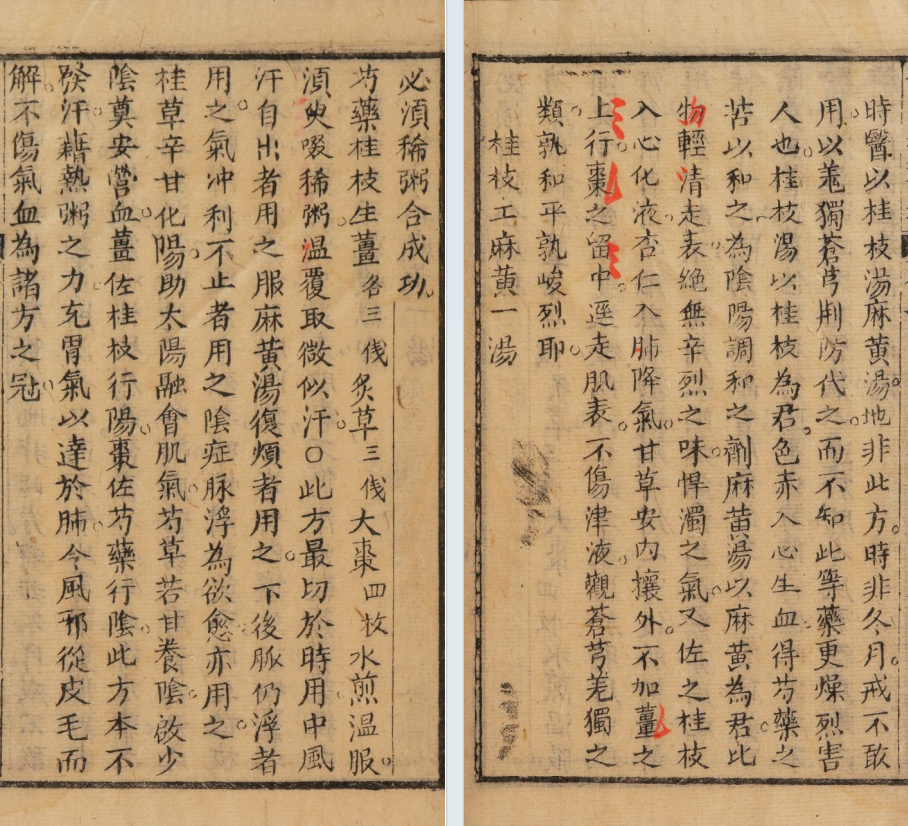 時醫以桂枝湯麻黃湯地非此方時非冬月戒不敢
用以羗獨蒼芎荆防代之而不知此等藥更燥烈害
人也桂枝湯以桂枝為君色赤入心生血得芍藥之
苦以和之為陰陽調和之劑麻黃湯以麻黃為君此
物輕清走表絶無辛烈之味悍濁之氣又佐之桂枝
入心化液杏仁入肺降氣甘草安内攘外不加薑之
上行棗之留中逕走肌表不傷津液觀蒼芎羗獨之
類孰和平孰峻烈耶
桂枝工麻黃一湯
必湏稀粥合成功
芍藥桂枝生薑各三伐炙草三伐大棗四枚水煎温服
湏臾啜稀粥温覆取微似汗○此方最切於時用中風
汗自出者用之服麻黃湯復煩者用之下後脈仍浮者
用之氣冲利不止者用之陰症脉浮為欲愈亦用之
桂草辛甘化陽助太陽融會肌氣芍草若甘養陰啟少
陰奠安營血薑佐桂枝行陽棗佐芍藥行陰此方本不
發汗藉熱粥之力充胃氣以達於肺令風邪從皮毛而
解不傷氣血為諸方之冠